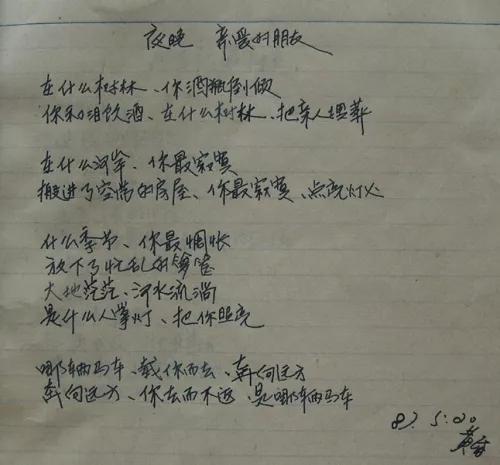 夜晚 亲爱的朋友
在什么树林、你酒瓶倒倾
你和泪饮酒、在什么树林、把亲人埋葬
在什么河岸、你最寂寞
搬进了空荡的房屋、你最寂寞、点亮灯火
什么季节、你最惆怅
放下了忙乱的箩筐
大地茫茫、河水流淌
是什么人掌灯、把你照亮
哪辆马车、载你而去、奔向远方
奔向远方、你去而不返、是哪辆马车
87. 5. 20
黄昏